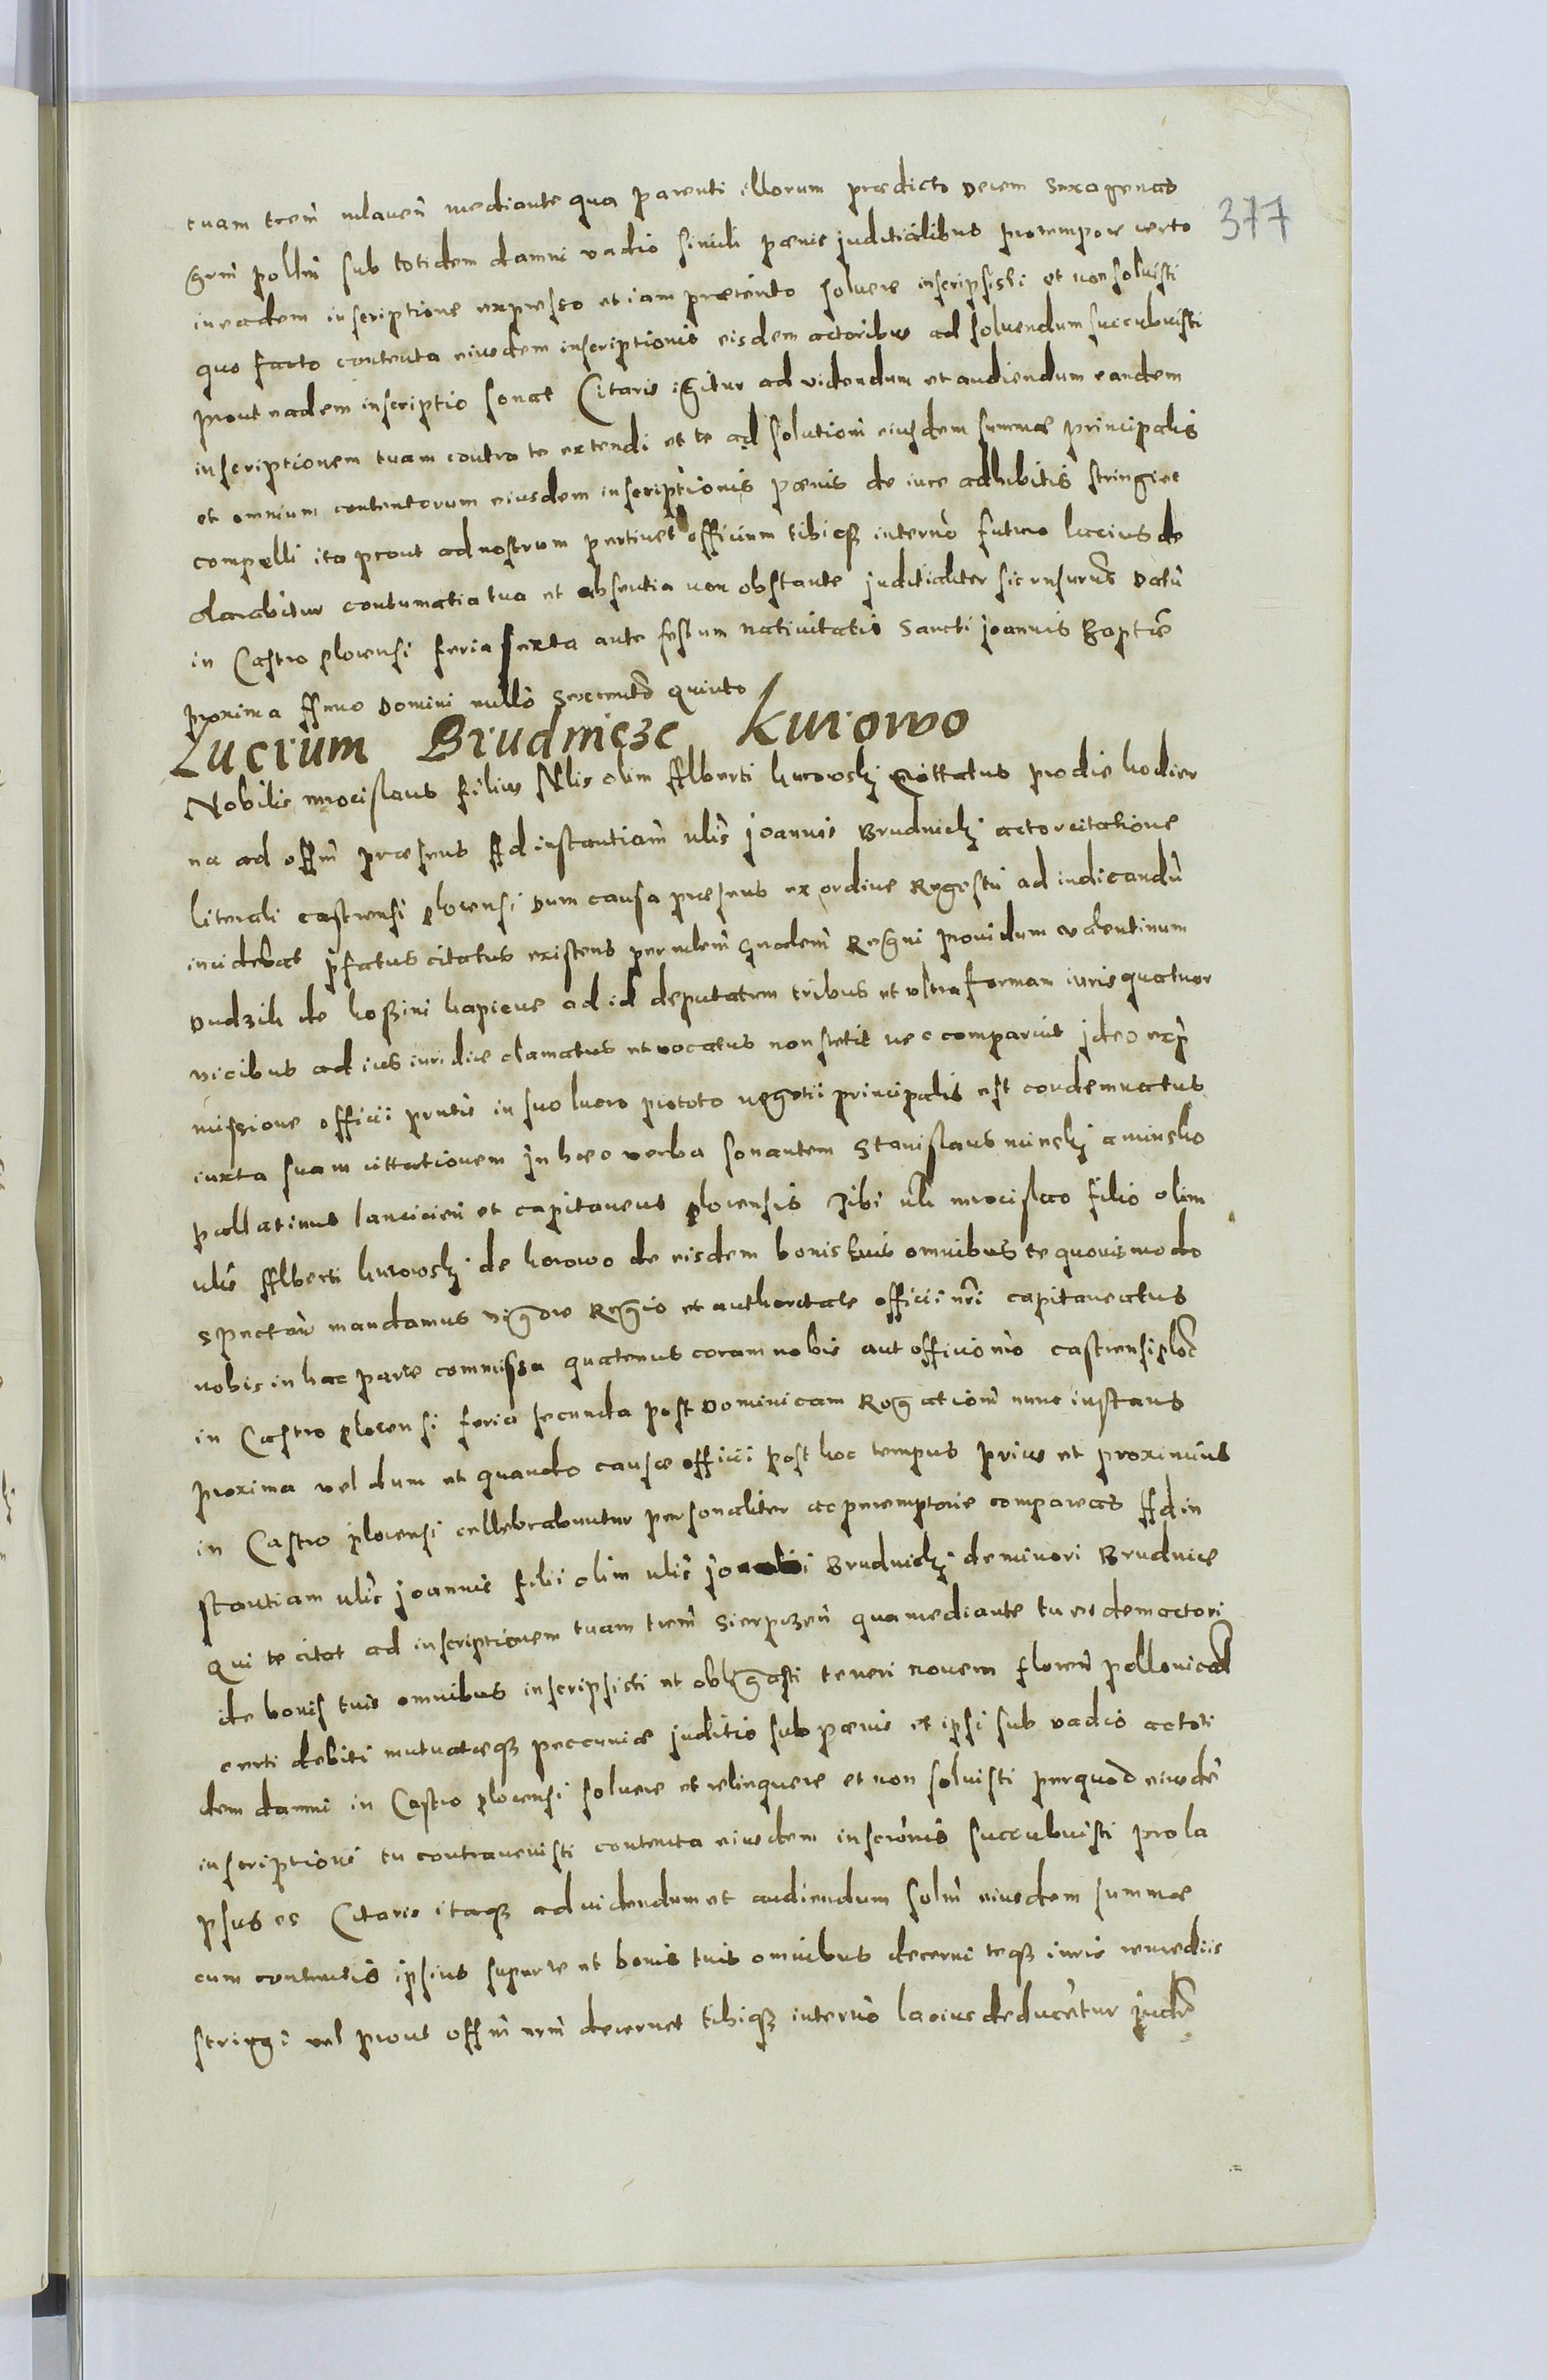 377
tuam trem mlaven mediante qua parenti illorum prædicto Decem Sexagenas
Grm pollm sub totidem damni vadio simili pœnis juditialibus protempore certo
ineadem inscriptione expresso et iam præterito solvere inscripsisti et non solvisti
quo facto contenta eiusdem inscriptionis eisdem actoribus ad solvendum succubuisti
prout eadem inscriptio sonat Citaris igitur ad videndum et audiendum eandem
inscriptionem tuam contra te extendi et te ad solutiom eiusdem summæ principalis
et omnium contentorum eiusdem inscriptionis pœnis de iure adhibitis stringi et
compelli ita prout ad nostrum pertinet officium tibiq interno futuro lacius de
clarabitur contumatia tua et absentia non obstante juditialiter sis responsurus Datū
in Castro plocensi feria sexta ante festum nativitatis Sancti joannis Baptæ
proxima Anno Domini millo Sexcento quinto
Lucrum Brudnicze Kurowo
Nobilis mrocislaus filius Nlis olim Alberti kurowskj Cittatus prodie hodier
na ad offm præsens Ad instantiam nlis joannis Brudnickj actor citatione
literali castrensi plocensi Dum causa præsens ex ordine Regestri ad iudicandū
incidebat pfatus citatus existens per mlem Gnalem Regni providum valentinum
Dudzik de koßmi kapicue ad id deputatum tribus et ultra formam iuris quatuor
vicibus ad ius iuridice clamatus et vocatus non stetit nec comparuit jdeo exp
missione officii pntis in suo lucro pro toto negotii principalis est condemnatus
iuxta suam cittationem jn hæc verba sonantem Stanislaus minskj a minsko
pallatinus lancicien et capitaneus plocensis Tibi nli mrocislao filio olim
nlis Alberti kurowskj de korowo de eisdem bonis tuis omnibus te quovismodo
Spectan mandamus vigore Regio et authoritate officii nri capitaneatus
nobis in hac parte commissa quatenus coram nobis aut officio nro castrensi ploc
in Castro plocensi feria secunda post Dominicam Rogationū nunc instans
proxima vel dum et quando causæ officii post hoc tempus prius et proximius
in Castro plocensi cellebrabuntur personaliter ac peremptorie compareas Ad in
stantiam nlis joannis filii olim nlis Brudnickj de minori Brudnice
Qui te citat ad inscriptionem tuam trem Sierpczen qua mediante tu eidem actori
de bonis tuis omnibus inscripsisti et obligasti te neri novem floren pollonical
certi debiti mutuatæq peccuniæ juditio sub pœnis et ipsi sub vadio actoti
dem damni in Castro plocensi solvere et relinquere et non solvisti per quod eiusdē
inscriptioni tu contravenisti contenta eiusdem inscronis succubuisti prola
psus es Citaris itaq ad videndum et audiendum solm eiusdem summæ
cum contentis ipsius super te et bonis tuis omnibus decerni teq iuris remediis
stringi vel prout offm nrm decernet tibiq interno lacius deducetur judr